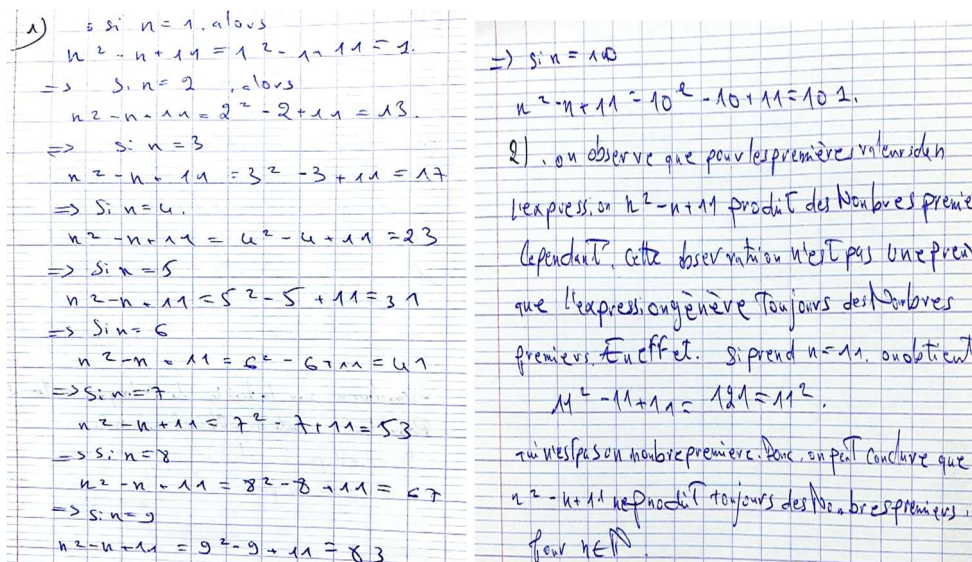 1) si n = 1, alors
n² - n + 11 = 1² - 1 + 11 = 1.
=> Si n = 2, alors
n² - n + 11 = 2² - 2 + 11 = 13.
=> si n = 3
n² - n + 11 = 3² - 3 + 11 = 17
=> Si n = 4.
n² - n + 11 = 4² - 4 + 11 = 23
=> Si n = 5
n² - n + 11 = 5² - 5 + 11 = 31
=> Si n = 6
n² - n + 11 = 6² - 6 + 11 = 41
=> Si n = 7
n² - n + 11 = 7² - 7 + 11 = 53
=> Si n = 8
n² - n + 11 = 8² - 8 + 11 = 67
=> Si n = 9
n² - n + 11 = 9² - 9 + 11 = 83
=> si n = 10
n² - n + 11 = 10² - 10 + 11 = 101.
2). on observe que pour les premières valeurs de n
l'expression n² - n + 11 produit des Nombres premie
Cependant, cette observation n'est pas une preuv
que l'expression génère Toujours des Nombres
premiers. En effet. si prend n = 11. on obtient
11² - 11 + 11 = 121 = 11².
qui n'est pas un nombre première. Donc, on peut conclure que
n² - n + 11 ne produit toujours des Nombres premiers.
Pour n ∈ ℕ.